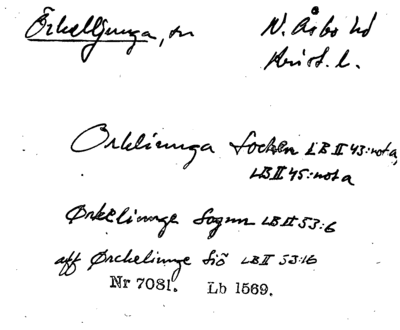 Örkelljunga, sn N. Åsbo hd
Krist. l.
Orkliunga Socken LB II 43: nota,
LB II 45: nota
Ørkeliunge Sognn LB II 53:6
aff Ørckeliunge Siö LB II 53:16
Nr 7081. Lb 1569.